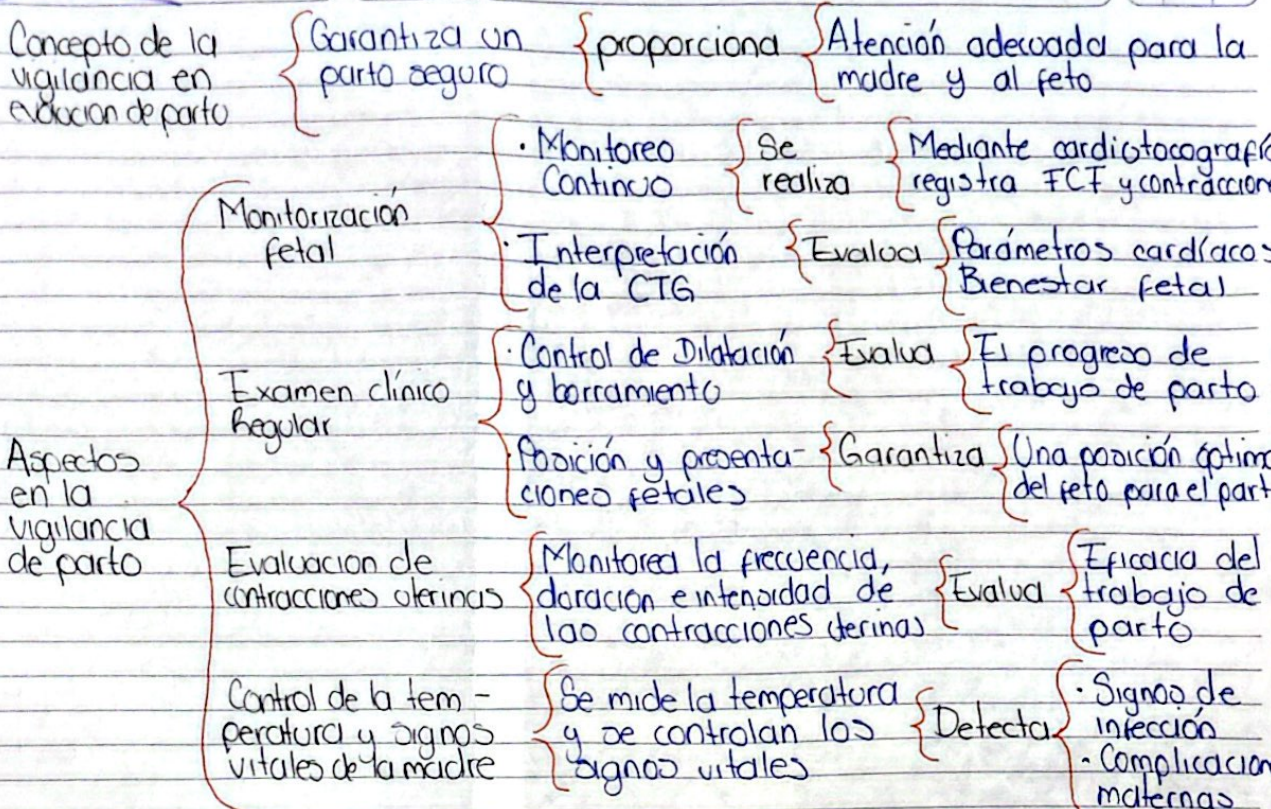 Concepto de la
vigilancia en
evolucion de parto
Garantiza un
parto seguro
proporciona
Atención adecuada para la
madre y al feto
Aspectos
en la
vigilancia
de parto
Monitorización
fetal
· Monitoreo
Continuo
Se
realiza
Mediante cardiotocografí
registra FCF y contraccion
· Interpretación
de la CTG
Evalua
Parámetros cardíacos
Bienestar fetal
Examen clínico
Regular
· Control de Dilatación
y borramiento
Evalua
El progreso de
trabajo de parto
· Posición y presenta-
ciones fetales
Garantiza
Una posición óptima
del feto para el part
Evaluacion de
contracciones uterinas
Monitorea la frecuencia,
duración e intensidad de
las contracciones uterinas
Evalua
Eficacia del
trabajo de
parto
Control de la tem-
peratura y signos
vitales de la madre
Se mide la temperatura
y se controlan los
signos vitales
Detecta
· Signos de
infección
· Complicacion
maternas